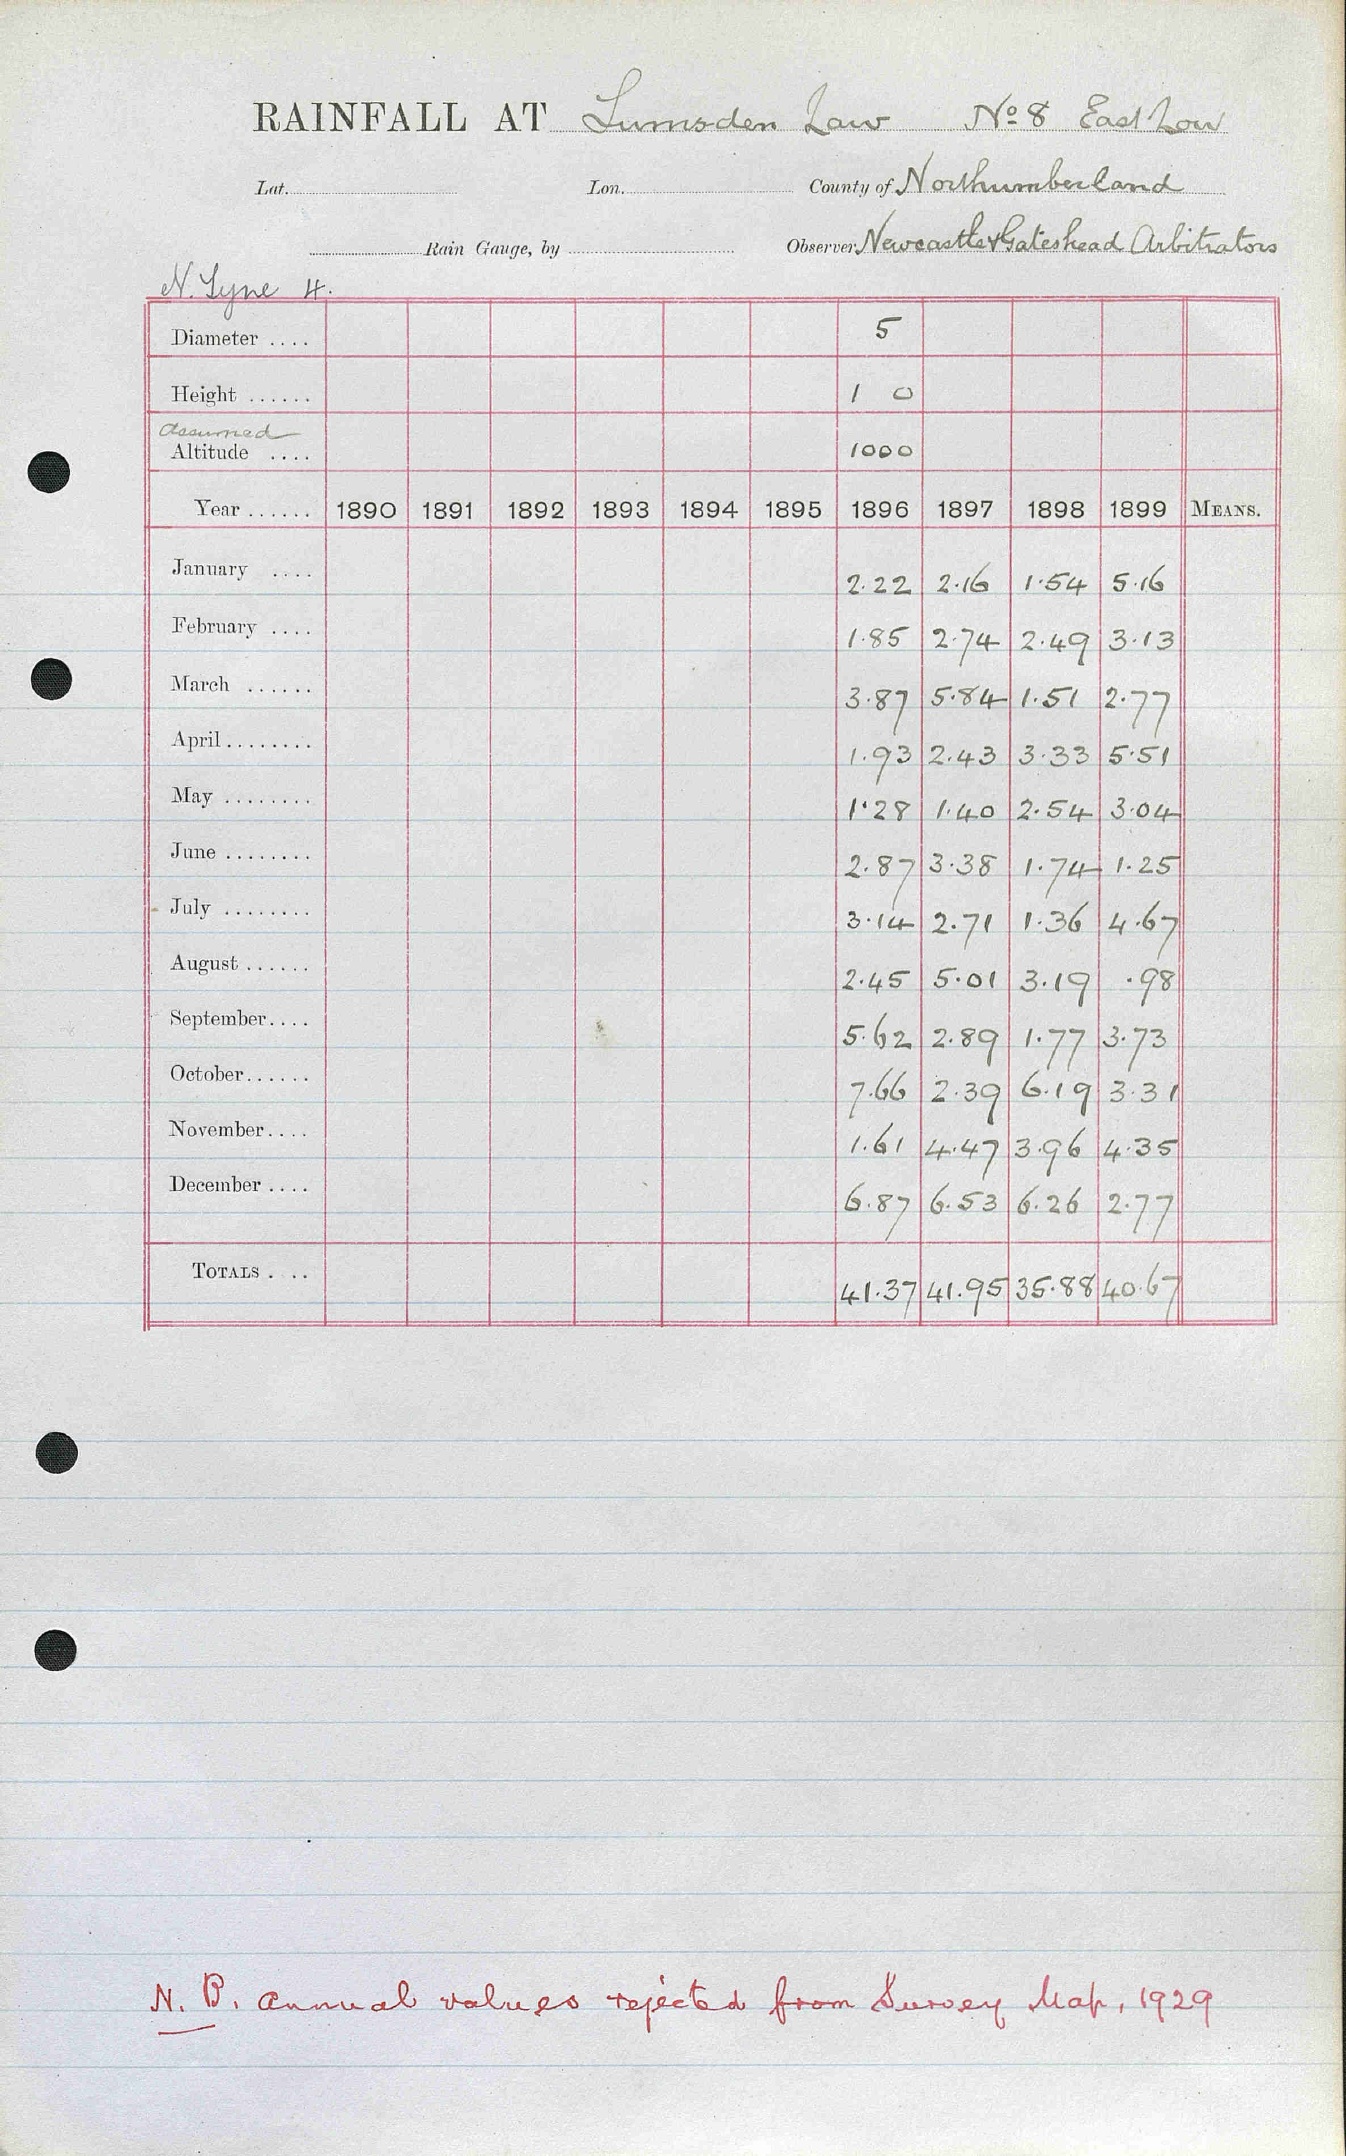 RAINFALL AT Lumsden Law No 8 East Low
Lat. Lon. County of Northumberland
Rain Gauge, by Observer Newcastle & Gateshead Arbitrators
N. Tyne 4.
Diameter .... 5
Height ...... 1 0
assumed
Altitude .... 1000
Year ...... 1890 1891 1892 1893 1894 1895 1896 1897 1898 1899 MEANS.
January .... 2.22 2.16 1.54 5.16
February .... 1.85 2.74 2.49 3.13
March ...... 3.87 5.84 1.51 2.77
April ........ 1.93 2.43 3.33 5.51
May ........ 1.28 1.40 2.54 3.04
June ........ 2.87 3.38 1.74 1.25
July ........ 3.14 2.71 1.36 4.67
August ...... 2.45 5.01 3.19 .98
September.... 5.62 2.89 1.77 3.73
October...... 7.66 2.39 6.19 3.31
November.... 1.61 4.47 3.96 4.35
December .... 6.87 6.53 6.26 2.77
TOTALS . .. 41.37 41.95 35.88 40.67
N. B. annual values rejected from Survey Map, 1929